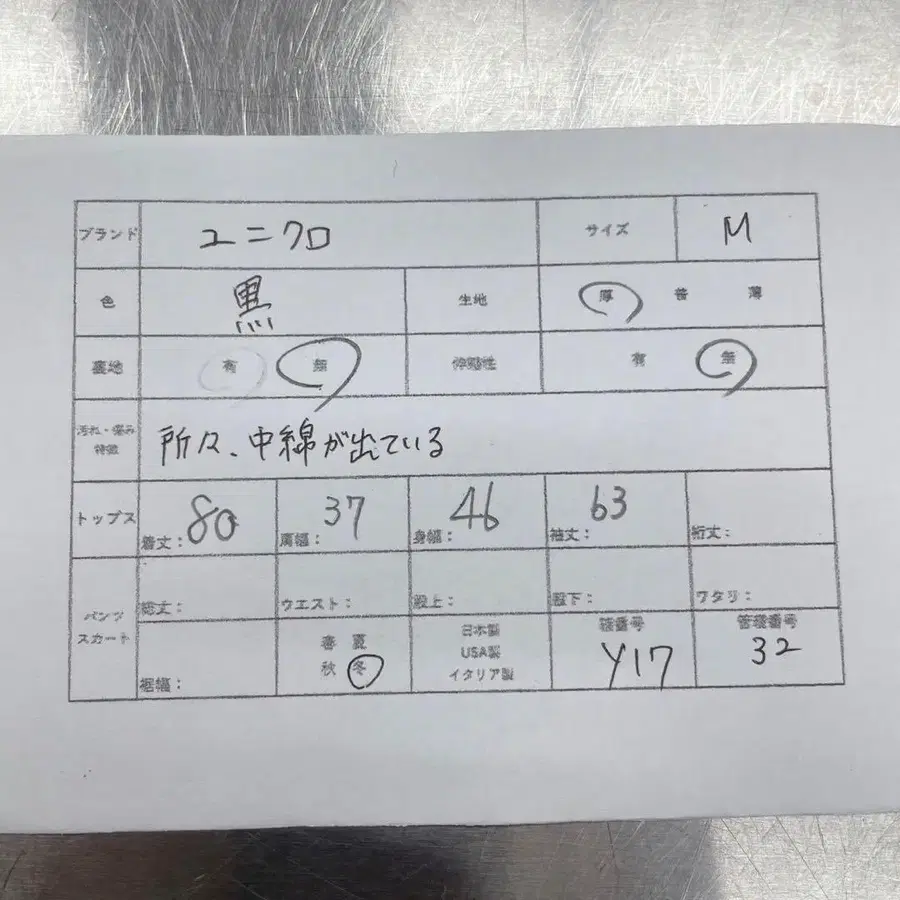 ブランド ユニクロ サイズ M
色 黒 生地 厚 普 薄
裏地 有 無 伸縮性 有 無
汚れ・傷み
特徴
所々、中綿が出ている
トップス 着丈：80 肩幅：37 身幅：46 袖丈：63 裄丈：
パンツ
スカート
総丈： ウエスト： 股上： 股下： ワタリ：
裾幅：
春 夏
秋 冬
日本製
USA製
イタリア製
袋番号
Y17
管理番号
32